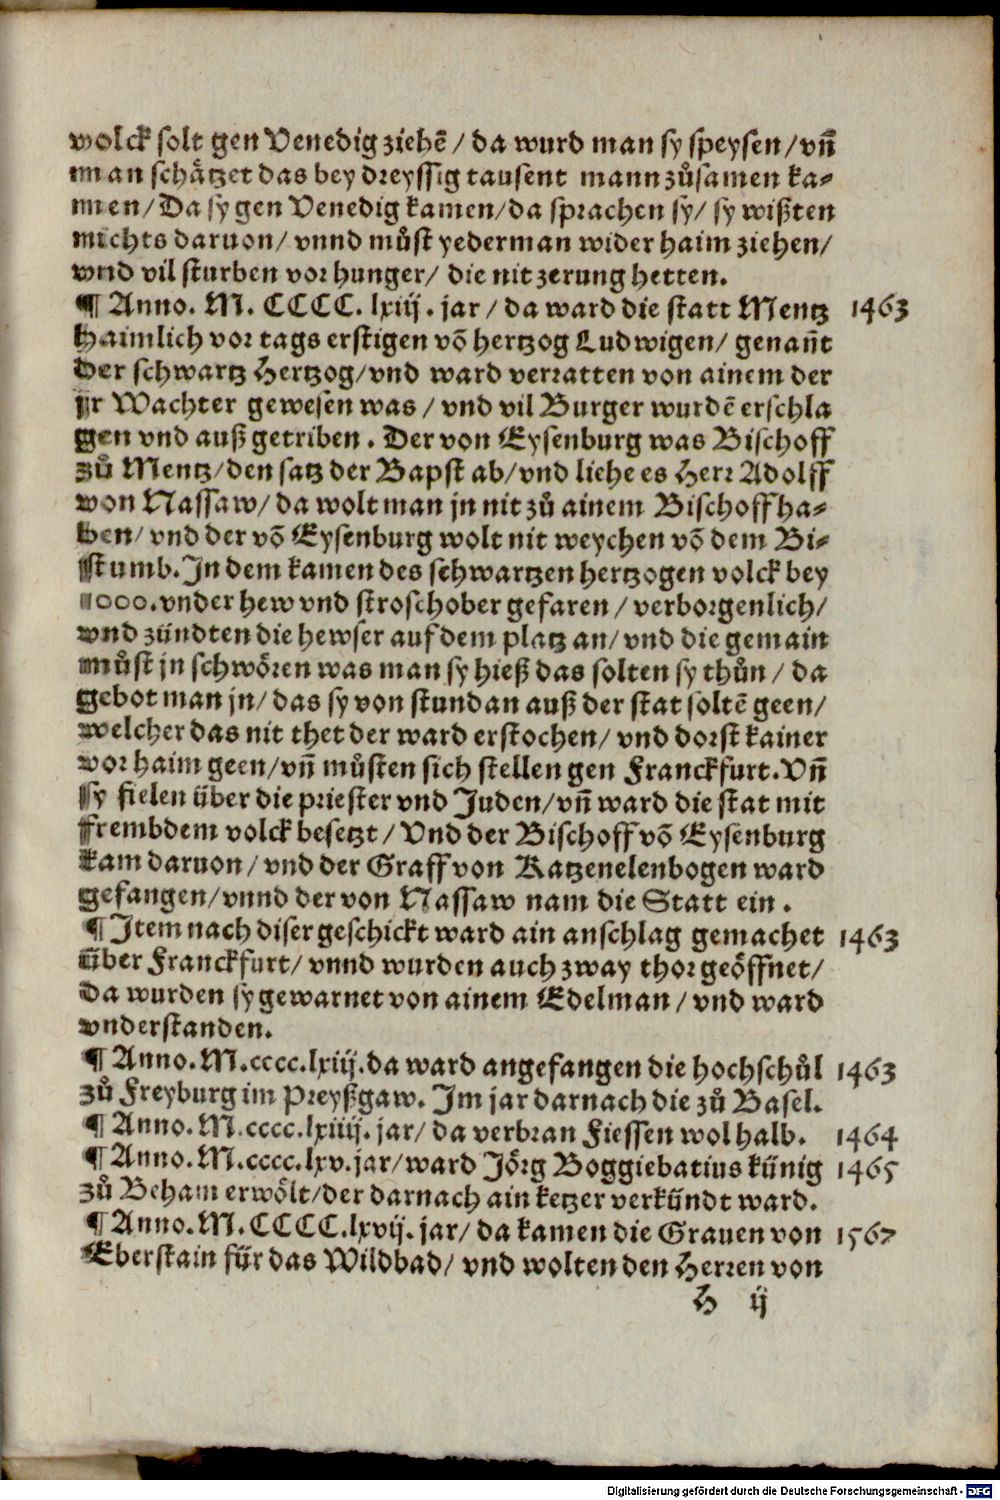 volck solt gen Venedig ziehē / da wurd man sy speysen / vñ
man schätzet das bey dreyssig tausent mann zůsamen ka⸗
men / Da sy gen Venedig kamen / da sprachen sy / sy wißten
nichts daruon / vnnd můst yederman wider haim ziehen /
vnd vil sturben vor hunger / die nit zerung hetten.
¶ Anno. M. CCCC. lxiij. jar / da ward die statt Mentz 1463
haimlich vor tags erstigen vō hertzog Ludwigen / genañt
Der schwartz Hertzog / vnd ward verratten von ainem der
jr Wachter gewesen was / vnd vil Burger wurdē erschla
gen vnd auß getriben. Der von Eysenburg was Bischoff
zů Mentz / den satz der Bapst ab / vnd liehe es Herr Adolff
von Nassaw / da wolt man jn nit zů ainem Bischoff ha⸗
ben / vnd der vō Eysenburg wolt nit weychen vō dem Bi⸗
stumb. In dem kamen des schwartzen hertzogen volck bey
1000. vnder hew vnd stroschober gefaren / verborgenlich /
vnd zündten die hewser auf dem platz an / vnd die gemain
můst jn schwören was man sy hieß das solten sy thůn / da
gebot man jn / das sy von stund an auß der stat soltē geen /
welcher das nit thet der ward erstochen / vnd dorst kainer
vor haim geen / vñ můsten sich stellen gen Franckfurt. Vñ
sy fielen über die priester vnd Juden / vñ ward die stat mit
frembdem volck besetzt / Vnd der Bischoff vō Eysenburg
kam daruon / vnd der Graff von Katzenelenbogen ward
gefangen / vnnd der von Nassaw nam die Statt ein.
¶ Item nach diser geschickt ward ain anschlag gemachet 1463
über Franckfurt / vnnd wurden auch zway thor geöffnet /
Da wurden sy gewarnet von ainem Edelman / vnd ward
vnderstanden.
¶ Anno. M. cccc. lxiij. da ward angefangen die hochschůl 1463
zů Freyburg im Preyßgaw. Im jar darnach die zů Basel.
¶ Anno. M. cccc. lxiiij. jar / da verbran Fiessen wol halb. 1464
¶ Anno. M. cccc. lxv. jar / ward Jörg Boggiebatius künig 1465
zů Beham erwölt / der darnach ain ketzer verkündt ward.
¶ Anno. M. CCCC. lxvij. jar / da kamen die Grauen von 1567
Eberstain für das Wildbad / vnd wolten den Herren von
H ij
Digitalisierung gefördert durch die Deutsche Forschungsgemeinschaft - DFG